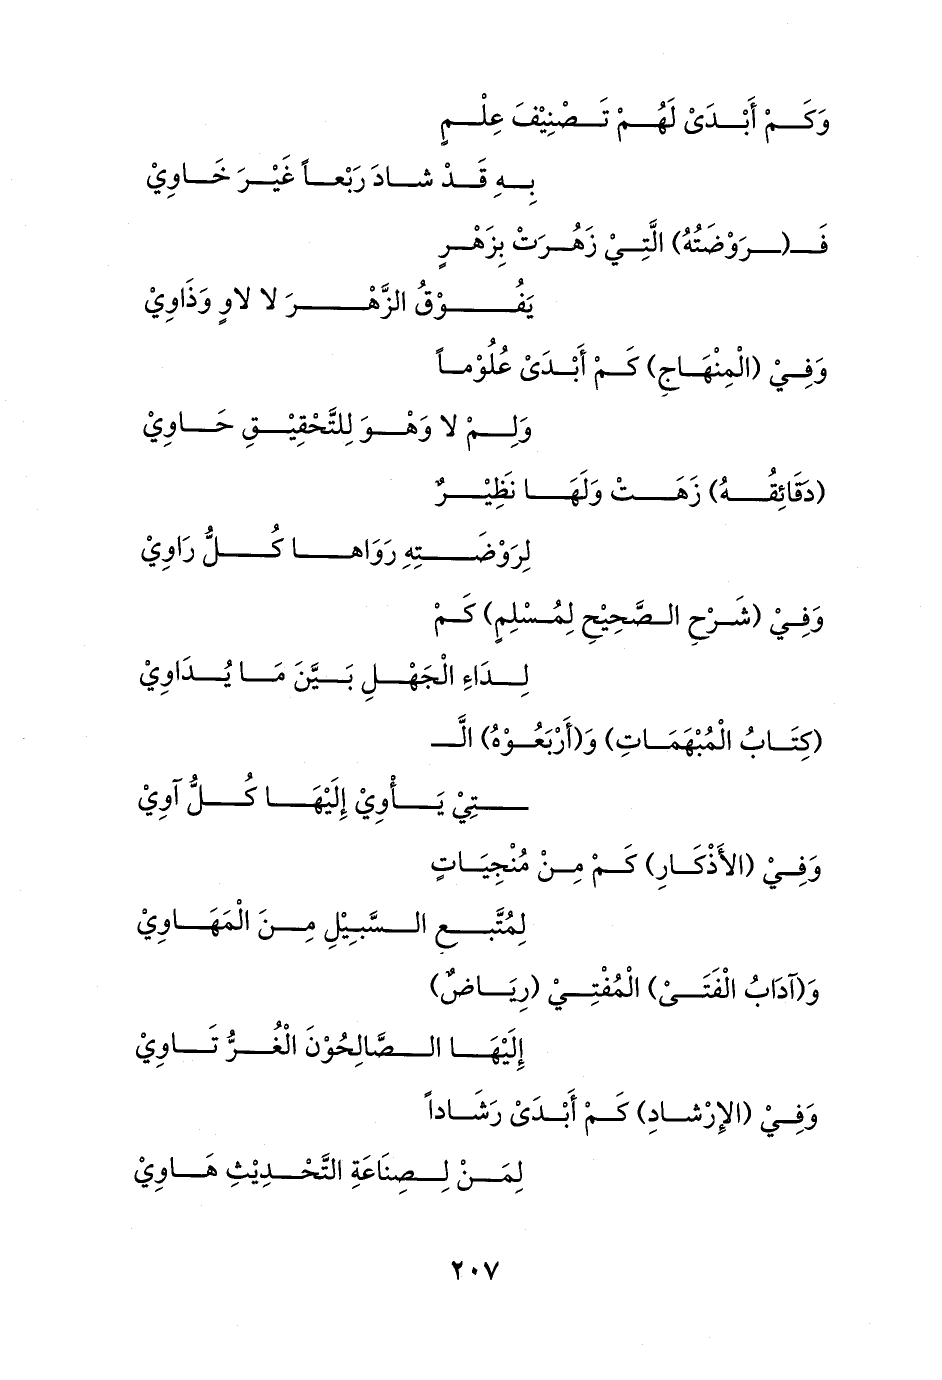 وَكَمْ أَبْدَىْ لَهُمْ تَصْنِيْفَ عِلْمٍ
بِهِ قَدْ شادَ رَبْعاً غَيْرَ خَاوِيْ
فَـ(ـرَوْضَتُهُ) الَّتِيْ زَهُرَتْ بِزَهْرٍ
يَفُوْقُ الزَّهْرَ لا لاوٍ وَذَاوِيْ
وَفِيْ (الْمِنْهَاجِ) كَمْ أَبْدَىْ عُلُوْماً
وَلِمْ لا وَهْوَ لِلتَّحْقِيْقِ حَاوِيْ
(دَقَائِقُهُ) زَهَتْ وَلَهَا نَظِيْرٌ
لِرَوْضَتِهِ رَوَاها كُلُّ رَاوِيْ
وَفِيْ (شَرْحِ الصَّحِيْحِ لِمُسْلِمٍ) كَمْ
لِدَاءِ الْجَهْلِ بَيَّنَ مَا يُدَاوِيْ
(كِتَابُ الْمُبْهَمَاتِ) وَ(أَرْبَعُوْهُ) الَّـ
ـتِيْ يَأْوِيْ إِلَيْهَا كُلُّ آوِيْ
وَفِيْ (الأَذْكَارِ) كَمْ مِنْ مُنْجِيَاتٍ
لِمُتَّبِعِ السَّبِيْلِ مِنَ الْمَهَاوِيْ
وَ(آدَابُ الْفَتَىْ) الْمُفْتِيْ (رِيَاضٌ)
إِلَيْهَا الصَّالِحُوْنَ الْغُرُّ تَاوِيْ
وَفِيْ (الإِرْشادِ) كَمْ أَبْدَىْ رَشَاداً
لِمَنْ لِصِنَاعَةِ التَّحْدِيْثِ هَاوِيْ
٢٠٧